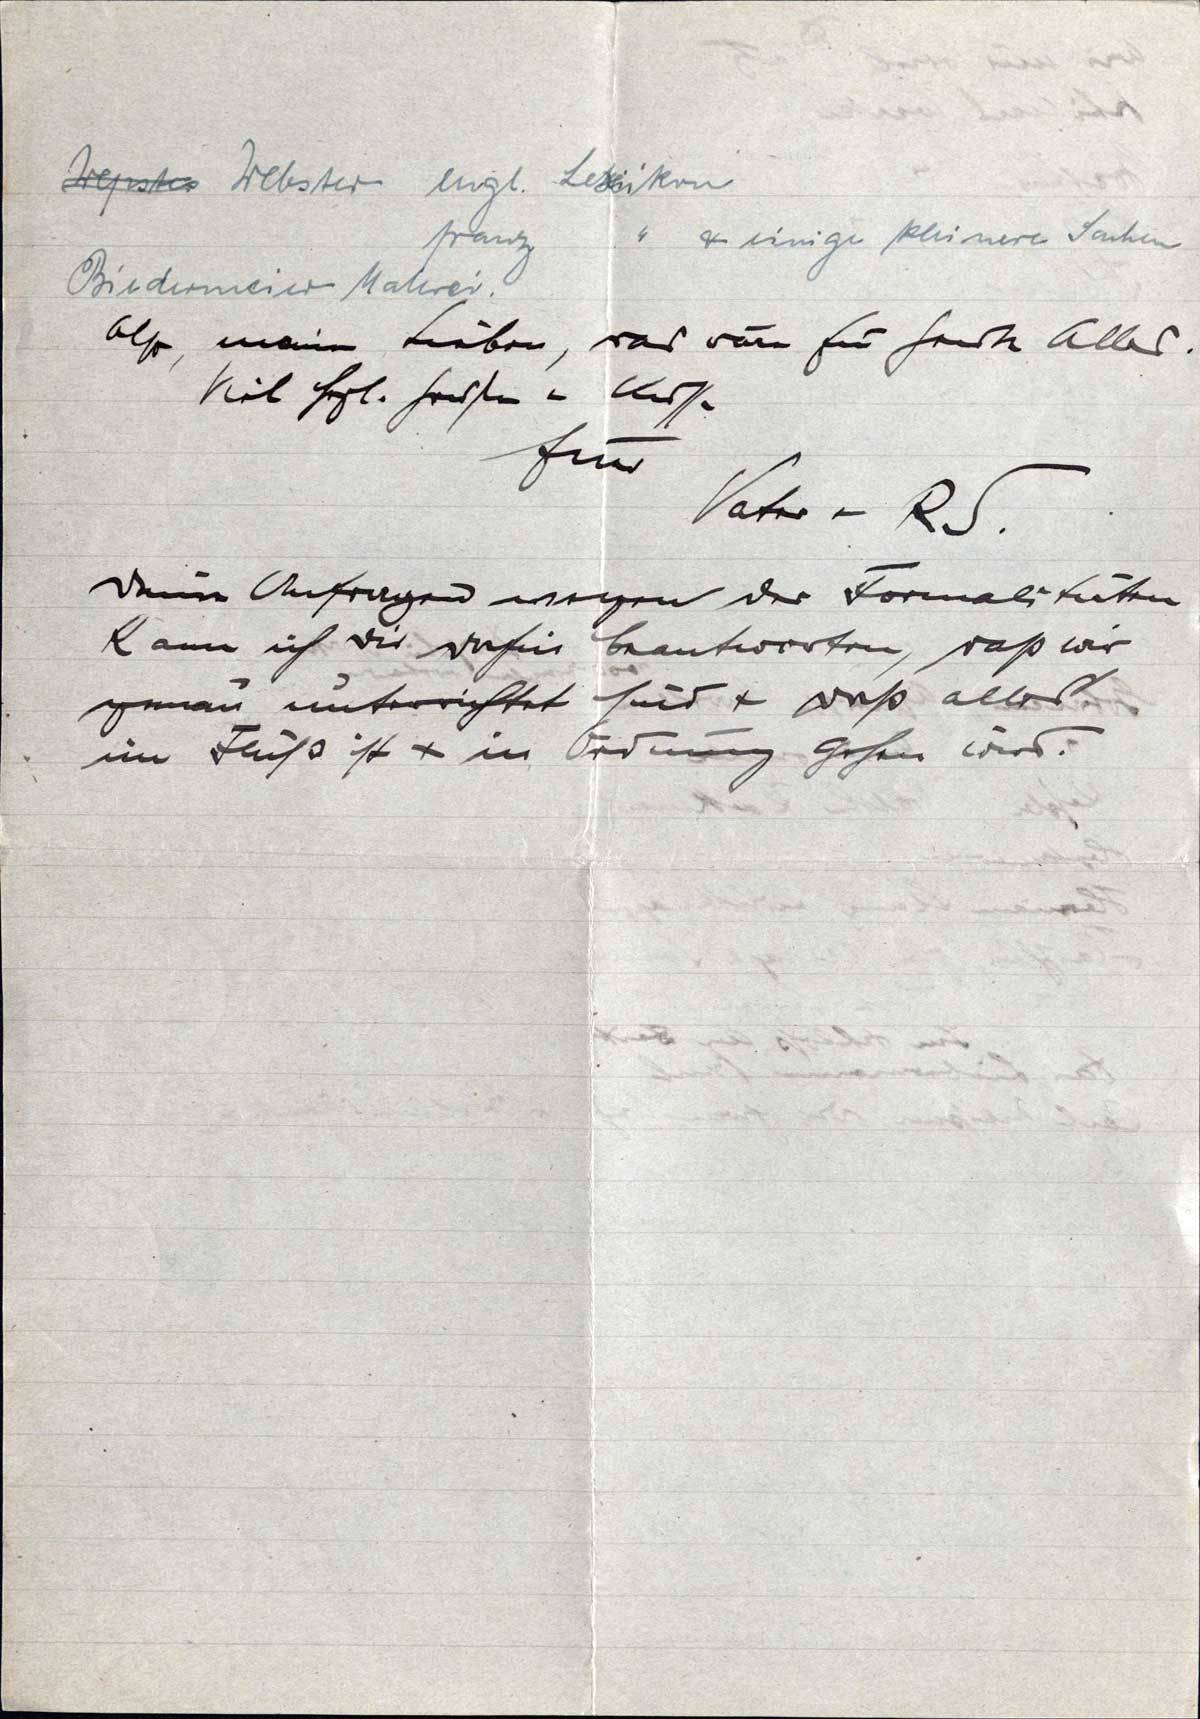 Wepster Webster engl. Lexikon
franz " & einige kleinere Sachen
Biedermeier Malerei.
Also, meine Lieben, das wäre für heute Alles.
Viel hrzl. Grüße u Küsse
Vater u R S.
Deine Anfragen wegen der Formalitäten
kann ich dir dahin beantworten, daß wir
genau unterrichtet sind & daß alles
im Fluß ist & in Ordnung gehen wird.